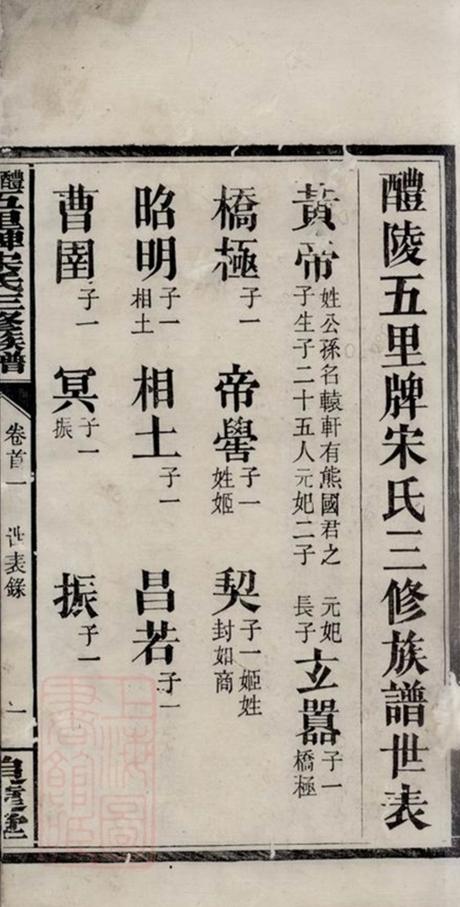 醴陵五里牌宋氏三修族譜世表
黃帝 姓公孫名轅軒有熊國君之子生子二十五人元妃二子 元妃長子 玄囂 子一橋極
橋極 子一 帝嚳 子一姓姬 契 子一姬姓封如商
昭明 子一相土 相土 子一 昌若 子一
曹圉 子一 冥 子一振 振 子一
醴五里牌宋氏三修族譜
卷首一 世表錄 一
上海圖書館藏